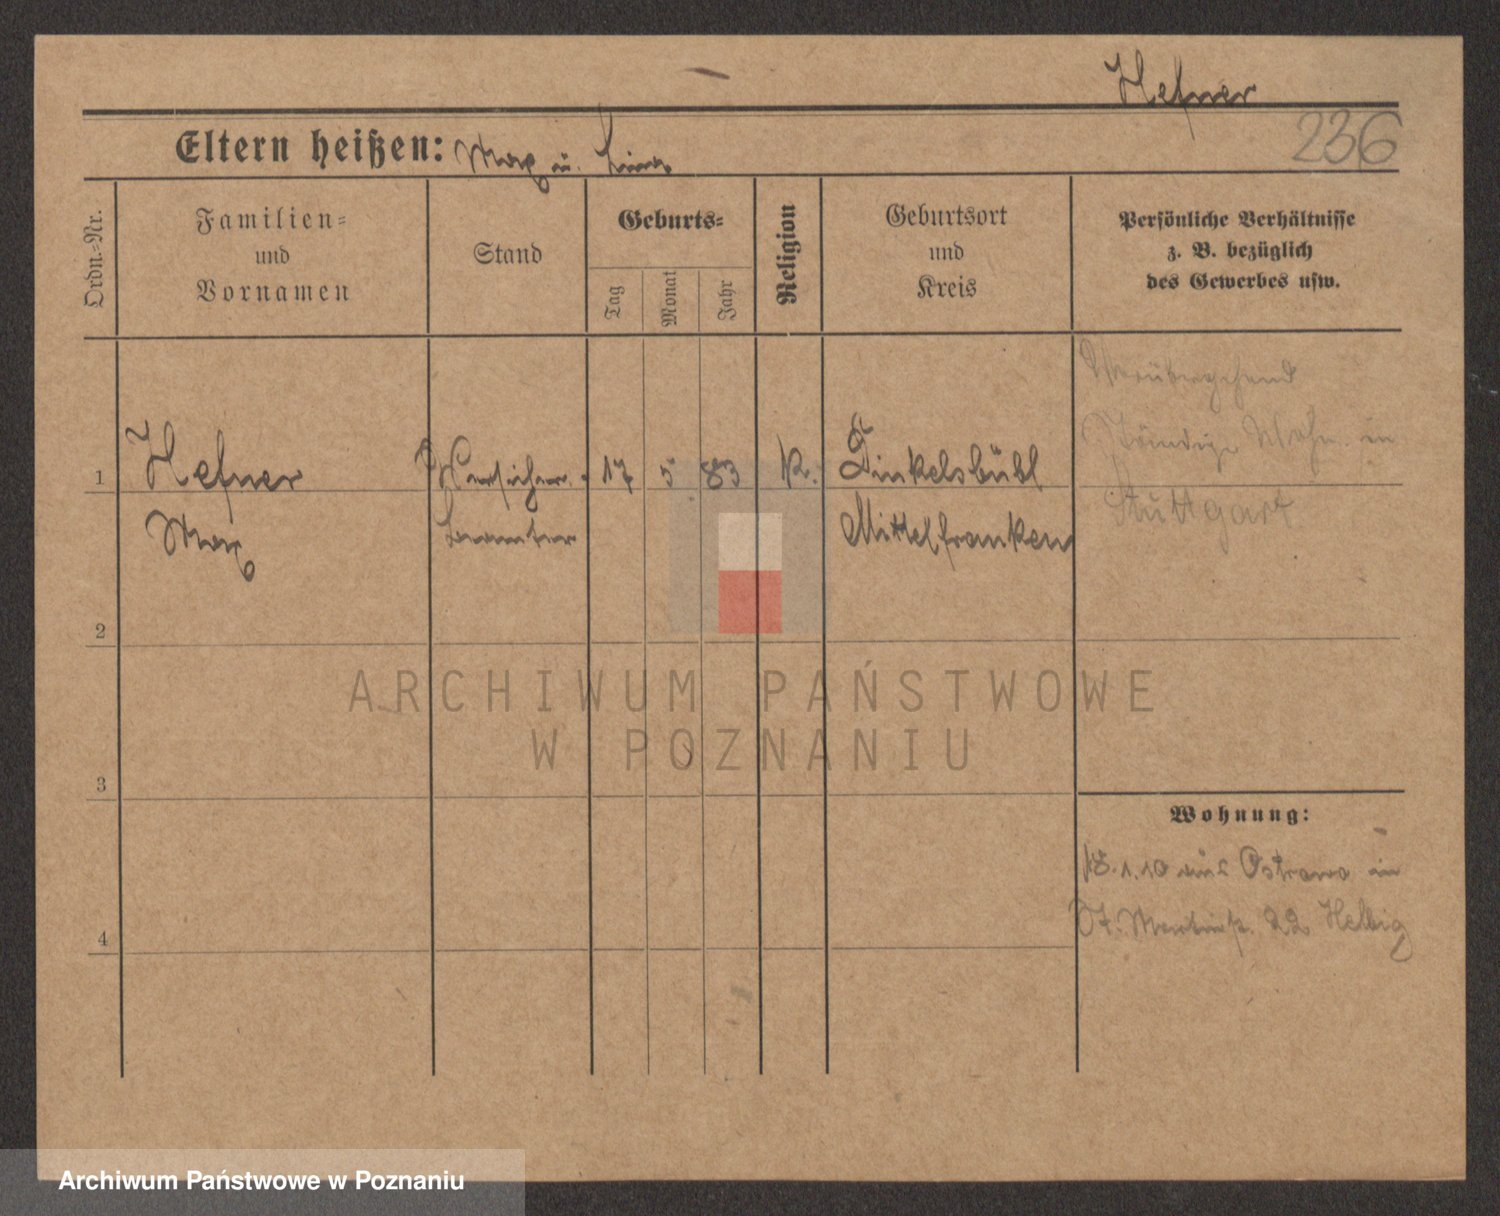 Hefner
236
Eltern heißen: Max u. Lina
Ordn.-Nr.
Familien-
und
Vornamen
Stand
Geburts-
Tag
Monat
Jahr
Religion
Geburtsort
und
Kreis
Persönliche Verhältnisse
z. B. bezüglich
des Gewerbes usw.
Vorübergehend
Ständige Wohn. in
Stuttgart
1
Hefner
Max
Versicher.
beamter
17
5
83
K.
Dinkelsbühl
Mittelfranken
2
ARCHIWUM PAŃSTWOWE
W POZNANIU
3
Wohnung:
18.1.10 aus Ostrowo in
22 Helbig
4
Archiwum Państwowe w Poznaniu